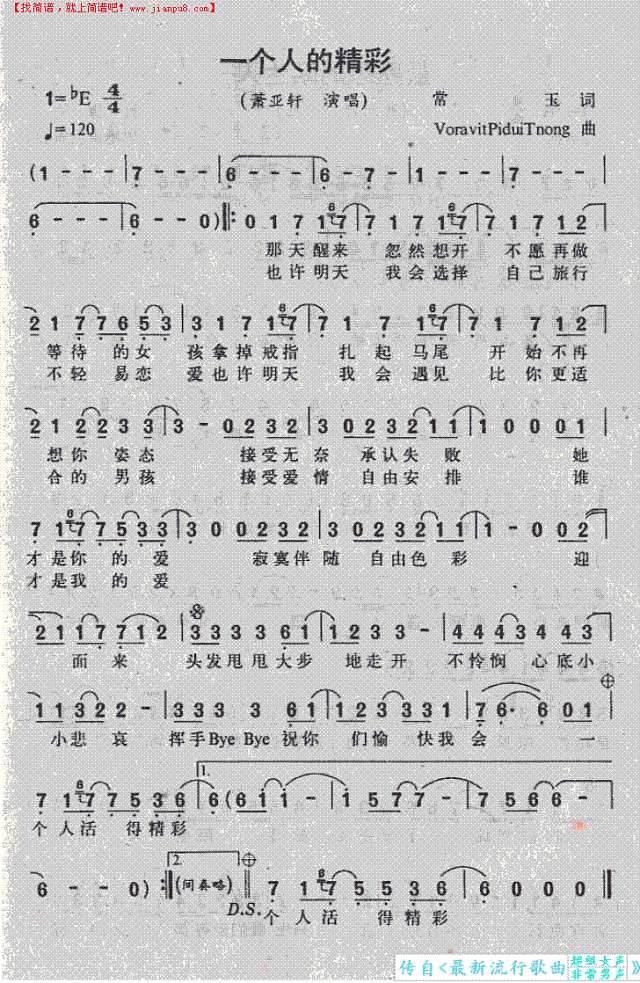 【找简谱，就上简谱吧！www.jianpu8.com】
一个人的精彩
1=♭E 4/4
(萧亚轩 演唱)
常 玉 词
♩=120
VoravitPiduiTnong 曲
(1 - - - | 7 - - - | 6 - - - | 6 - 7 - | 1 - - - | 7 - - -
6 - - - | 6 - - 0) ‖: 0 1 7 1 6 7 | 7 1 7 1 6 7 | 7 1 7 1 2
那天醒来 忽然想开 不愿再做
也许明天 我会选择 自己旅行
2 1 7 7 6 5 3 | 3 1 7 1 6 7 | 7 1 7 1 6 7 | 7 1 7 1 2
等待 的女 孩拿掉戒指 扎起 马尾 开始不再
不轻 易恋 爱也许明天 我会 遇见 比你更适
2 1 2 2 3 2 3 | 3 - 0 2 3 2 | 3 0 2 3 2 1 1 | 1 0 0 0 1
想你 姿态 接受无奈 承认失败 她
合的 男孩 接受爱情 自由安排 谁
7 1 6 7 7 5 3 3 | 3 0 0 2 3 2 | 3 0 2 3 2 1 1 | 1 - 0 0 2
才是你 的爱 寂寞伴随 自由色彩 迎
才是我 的爱
2 1 1 7 7 1 2 | 3 3 3 3 6 1 | 1 2 3 3 - | 4 4 4 3 4 4 3
面来 头发甩甩大步 地走开 不怜悯 心底小
1 1 3 2 2 - | 3 3 3 3 3 6 1 | 1 2 3 3 3 1 | 7 6· 6 0 1
小悲哀 挥手ByeBye祝你 们愉快我会 一
1.
7 1 6 7 7 5 3 6 | 6 (6 1 1 - | 1 5 7 7 - | 7 5 6 6 -
个人活 得精彩
2.
6 - - 0) :‖ (间奏略) ‖ 7 1 6 7 5 5 3 6 | 6 0 0 0 ‖
D.S.
个人活 得精彩
传自<最新流行歌曲 超级女声 非常男声》